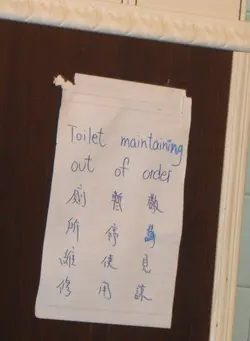 Toilet maintaining
out of order
廁所維修
暫停使用
敬見諒